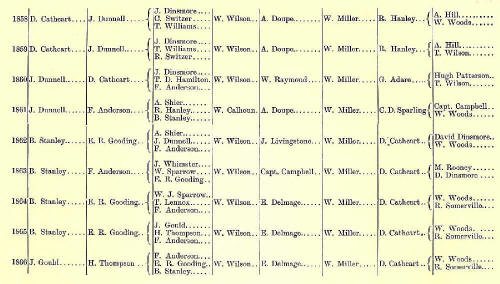 J. Dinsmore....
1858 D. Cathcart.... J. Dunnell.... C. Switzer.... W. Wilson.. A. Doupe.... W. Miller.... R. Hanley.... A. Hill........
T. Williams.... W. Woods....
J. Dinsmore....
1859 D. Cathcart.... J. Dunnell.... T. Williams.... W. Wilson.. A. Doupe.... W. Miller.... R. Hanley.... A. Hill........
R. Switzer.... T. Wilson....
J. Dinsmore....
1860 J. Dunnell.... D. Cathcart.... T. D. Hamilton. W. Wilson.. W. Raymond.. W. Miller.... G. Adare.... Hugh Patterson..
F. Anderson.... T. Wilson....
A. Shier....
1861 J. Dunnell.... F. Anderson.... R. Hanley.... W. Calhoun. A. Doupe.... W. Miller.... C. D. Sparling Capt. Campbell..
B. Stanley.... W. Woods....
A. Shier....
1862 B. Stanley.... E. R. Gooding.... J. Dunnell.... W. Wilson.. J. Livingstone.. W. Miller.... D. Cathcart.. David Dinsmore..
F. Anderson.... W. Woods....
J. Whimster....
1863 B. Stanley.... F. Anderson.... W. Sparrow.... W. Wilson.. Capt. Campbell. W. Miller.... D. Cathcart.. M. Rooney....
E. R. Gooding.. D. Dinsmore....
W. J. Sparrow..
1864 B. Stanley.... E. R. Gooding.... T. Lennox.... W. Wilson.. E. Delmage.... W. Miller.... D. Cathcart.. W. Woods....
F. Anderson.... R. Somerville..
J. Gould....
1865 B. Stanley.... E. R. Gooding.... H. Thompson.... W. Wilson.. E. Delmage.... W. Miller.... D. Cathcart.. W. Woods....
F. Anderson.... R. Somerville..
F. Anderson....
1866 J. Gould.... H. Thompson.... E. R. Gooding.. W. Wilson.. E. Delmage.... W. Miller.... D. Cathcart.. W. Woods....
B. Stanley.... R. Somerville..